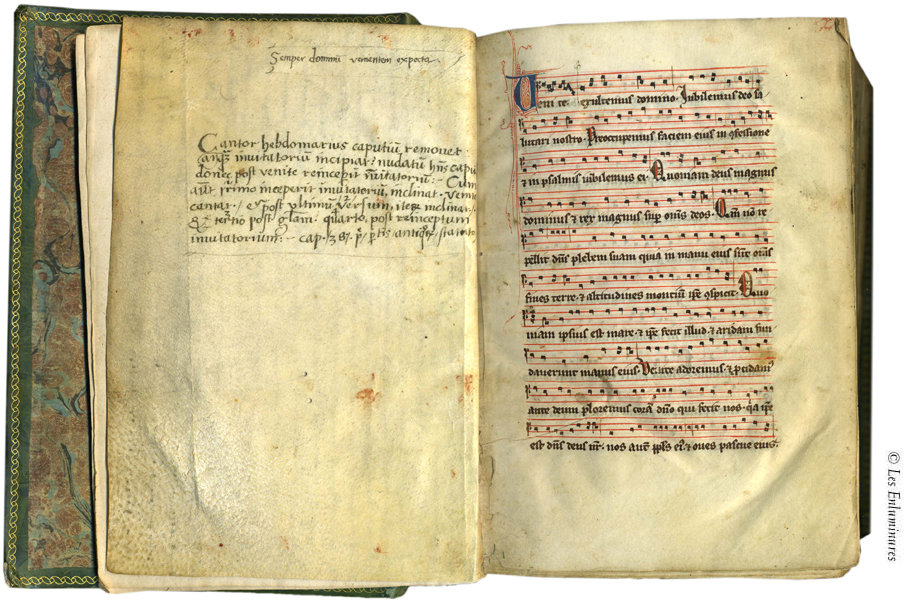 Semper dominū venientem expecta.
Cantor hebdomarius caputiū removet
anq̄ȝ invitatoriū incipiat: nudatū hn̄s capu
donec post venite reincepit invitatoriū :- Cum
aūt primo inceperit invitatoriū, inclinat. Venite
cantat / et post ultimū versum, iteȝ inclinat /
et tertio post głam. quarto, post reinceptum
invitatorium: - cap. 38. p̄ p̄tis / antiq̄ / statuto
Venite exultemus domino. Jubilemus deo sa
lutari nostro. Preocupemus faciem eius in ꝯfessione
& in psalmis iubilemus ei. Quoniam deus magnus
dominus ⁊ rex magnus sup om̄s deos. Qm̄ nō re
pellit dn̄s plebem suam quia in manu eius sūt om̄s
fines terre. & altitudines montiū ip̄e ꝯspicit. Quo
niam ipsius est mare. & ip̄e fecit illud. & aridam fun
daverunt manus eius. Venite adoremus. & p̄cidam9
ante deum ploremus corā dn̄o qui fecit nos. q̄a ip̄e
est dn̄s deus nr̄. nos aut̄ pp̄ls ei9. & oves pascue eius.
© Les Enluminures